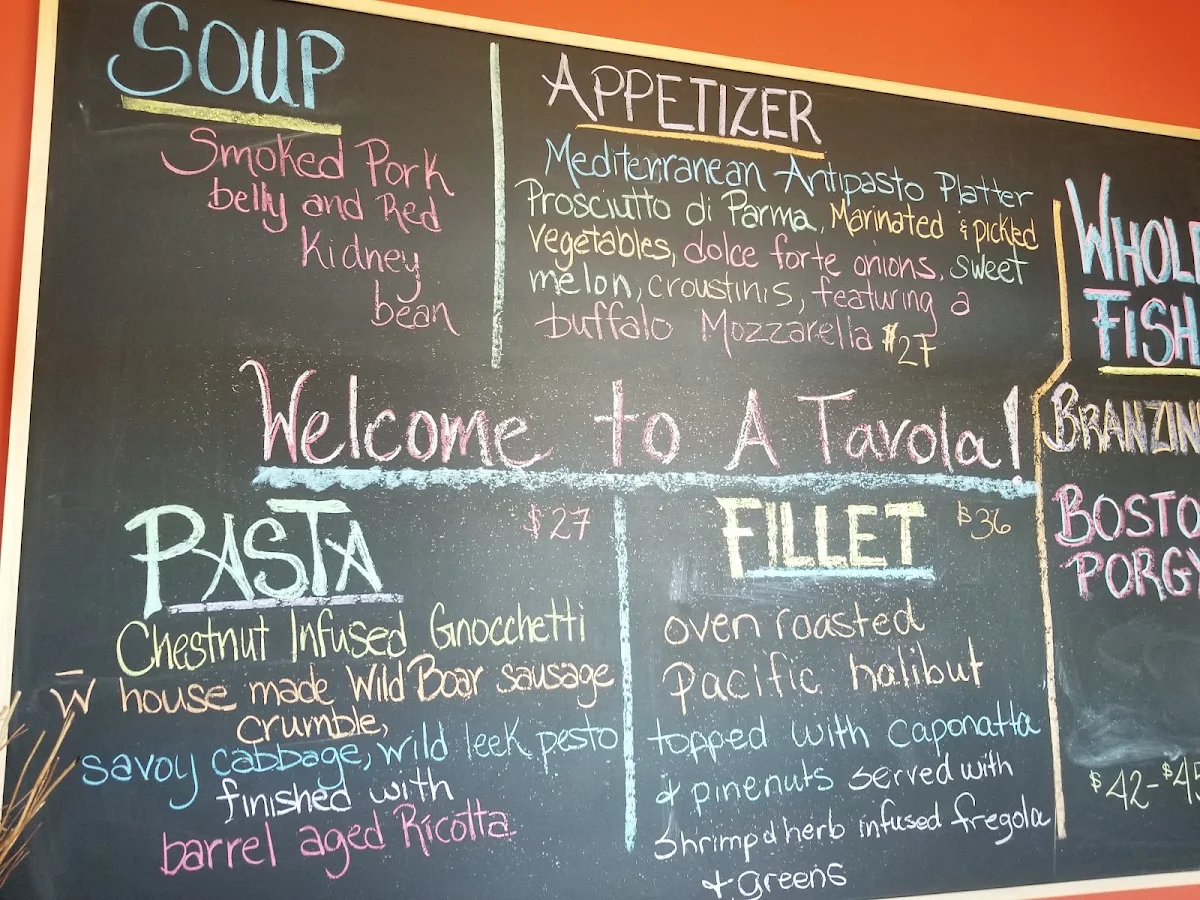 SOUP
Smoked Pork
belly and Red
Kidney
bean
APPETIZER
Mediterranean Antipasto Platter
Prosciutto di Parma, Marinated & pickled
vegetables, dolce forte onions, sweet
melon, croustinis, featuring a
buffalo Mozzarella $27
Welcome to A Tavola!
PASTA $27
Chestnut Infused Gnocchetti
w̄ house made Wild Boar sausage
crumble,
savoy cabbage, wild leek pesto
finished with
barrel aged Ricotta
FILLET $36
oven roasted
Pacific halibut
topped with caponatta
& pinenuts served with
shrimp & herb infused fregola
+ greens
WHOLE
FISH
BRANZIN
BOSTO
PORGY
$42-$45